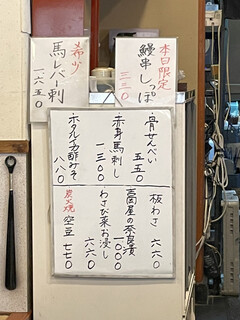 本日限定
鰻串しっぽ
三三〇
希少
馬レバー刺
一六五〇
骨せんべい
五五〇
赤身馬刺し
一三〇〇
ホタルイカ酢みそ
八八〇
板わさ
六六〇
吉岡屋の奈良漬
1000
わさび菜お浸し
六六〇
炭火焼 空豆
七七〇